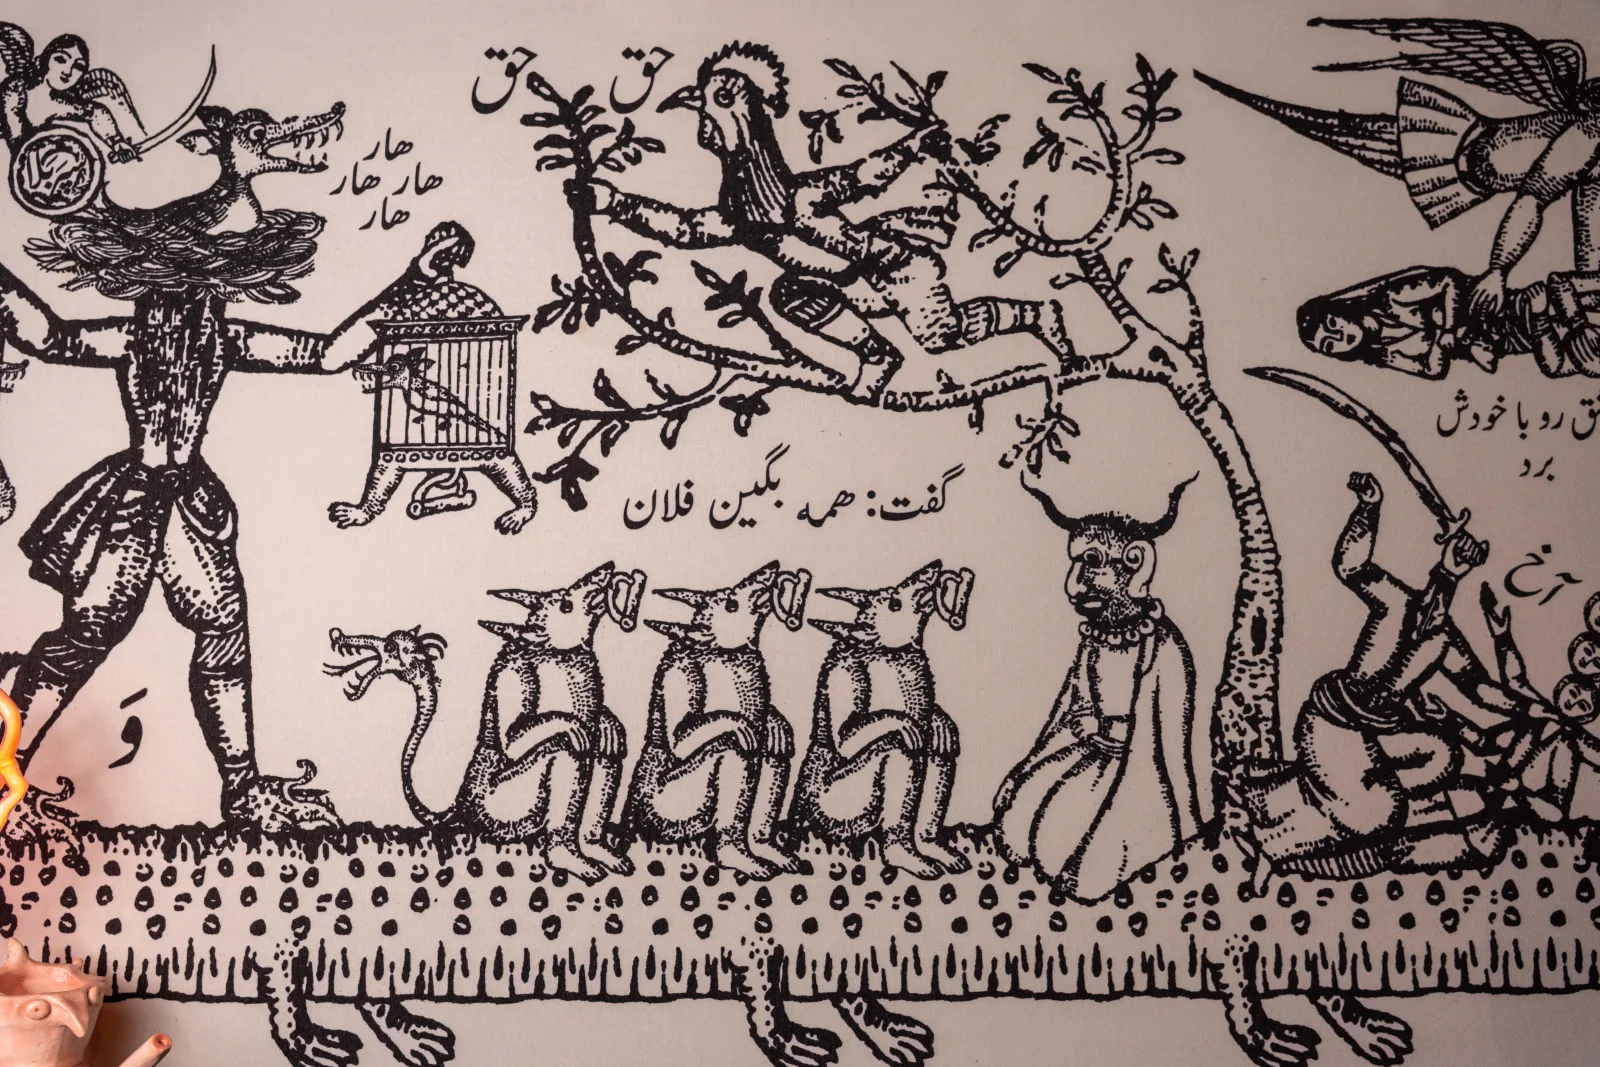 حق حق
هار
هار هار
هار
گفت: همه بگین فلان
رو با خودش
برد
آخ
وَ